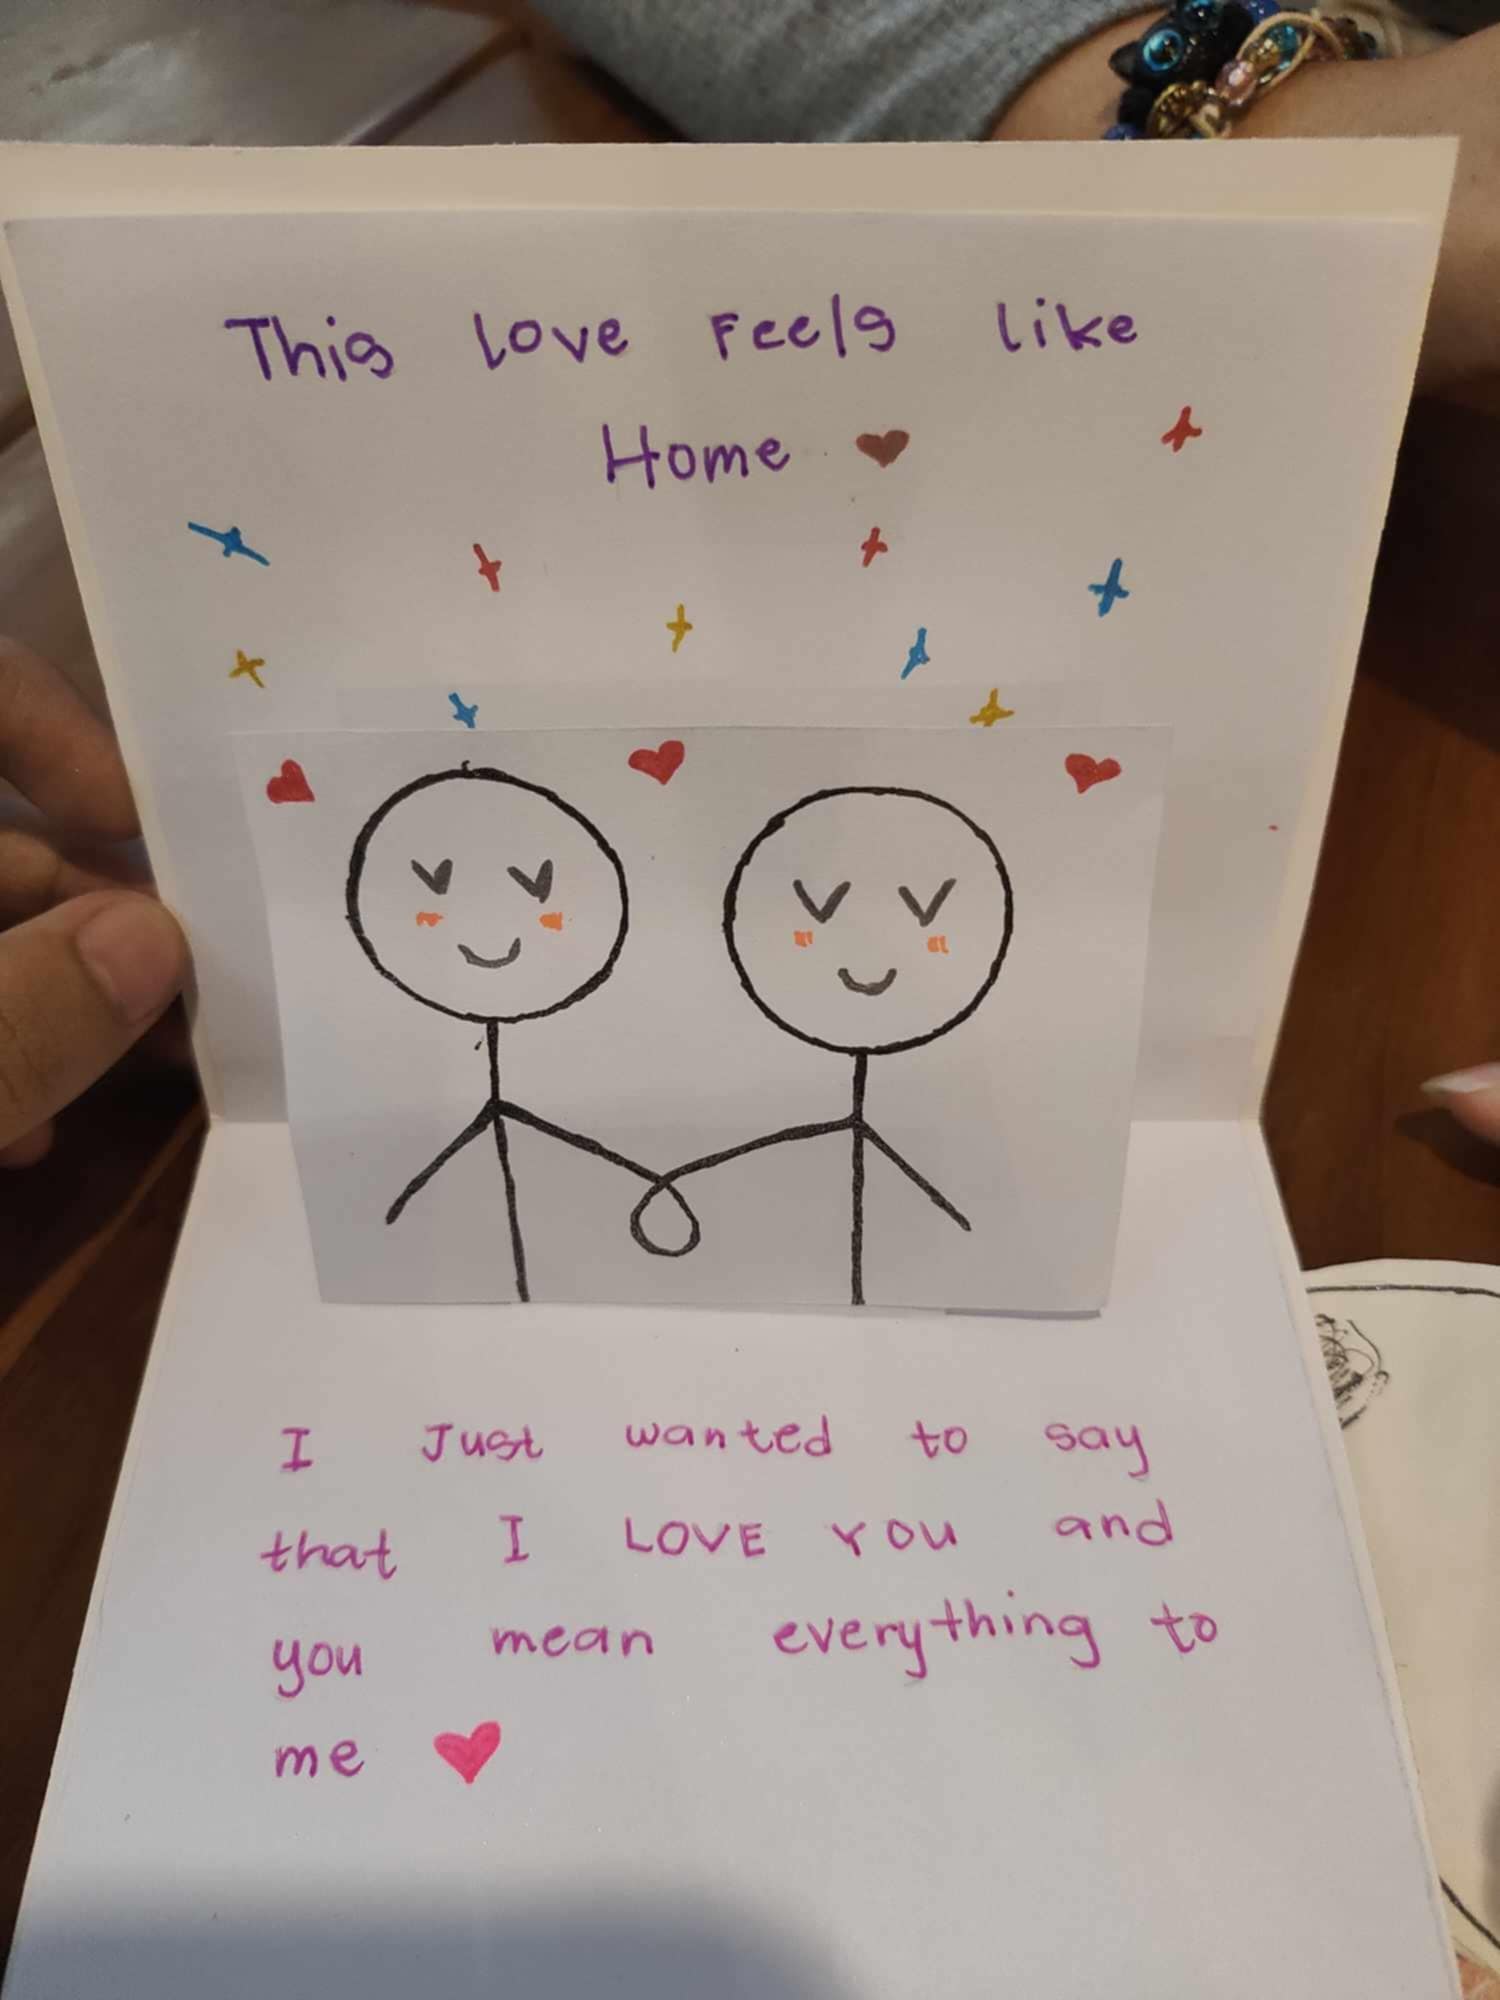 This Love Feels like
Home
I Just wanted to say
that I LOVE YOU and
you mean everything to
me